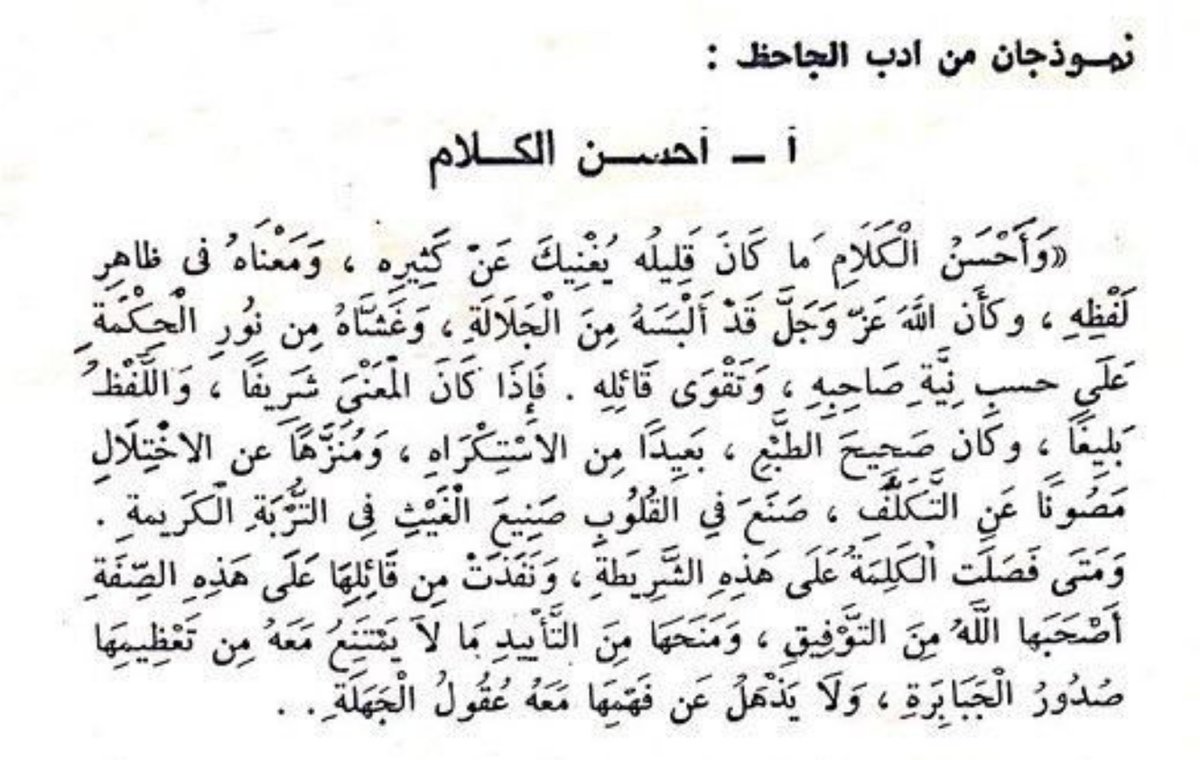 نموذجان من ادب الجاحظ :
أ ــ أحسن الكلام
«وَأَحْسَنُ الْكَلَامِ مَا كَانَ قَلِيلُه يُغْنِيكَ عَنْ كَثِيرِهِ ، وَمَعْنَاهُ فى ظاهِرِ
لَفْظِهِ ، وكَأَن اللهَ عَزّ وَجَلَّ قَدْ أَلْبَسَهُ مِنَ الْجَلَالَةِ ، وَغَشَّاهُ مِن نُورِ الْحِكْمَةِ
عَلَى حسبِ نِيَّةِ صَاحِبِهِ ، وَتَقْوَى قَائلِهِ . فَإِذَا كَانَ الْمَعْنَى شَرِيفًا ، وَاللَّفْظُ
بَلِيغًا ، وكَان صَحِيحَ الطَّبْعِ ، بَعِيدًا مِن الاسْتِكْرَاهِ ، وَمُنَزَّهًا عن الاخْتِلَالِ
مَصُونًا عَنِ التَّكَلُّفِ ، صَنَعَ فِي القُلُوبِ صَنِيعَ الْغَيْثِ فِى التُّرْبَةِ الْكَرِيمةِ .
وَمَتَى فَصَلَت الْكَلِمَةُ عَلَى هَذِهِ الشَّرِيطَةِ ، وَنَفَذَتْ مِن قَائِلِهَا عَلَى هَذِهِ الصِّفَةِ
أَصْحَبَها اللَّهُ مِنَ التَّوْفِيقِ ، وَمَنَحَهَا مِنَ التَّأْيِيدِ مَا لاَ يَمْتَنِعُ مَعَهُ مِن تَعْظِيمِهَا
صُدُورُ الْجَبَابِرَةِ ، وَلَا يَذْهَلُ عَن فَهْمِهَا مَعَهُ عُقُولُ الْجَهَلَةِ . .